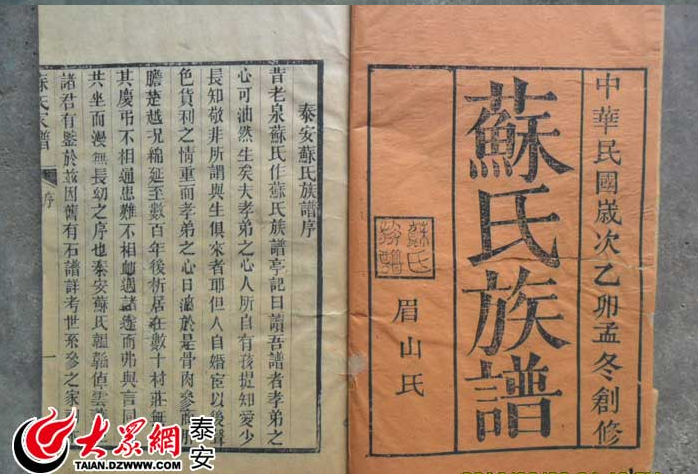 中華民國歲次乙卯孟冬創修
蘇氏族譜
蘇氏
族譜
眉山氏
泰安蘇氏族譜序
昔老泉蘇氏作蘇氏族譜亭記曰讀吾譜者孝弟之
心可油然生矣夫孝弟之心人所自有孩提知愛少
長知敬非所謂與生俱來者耶但人自婚宦以後聲
色貨利之情重而孝弟之心日漓於是骨肉參商肝
膽楚越况綿延至數百年後析居在數十村莊無
其慶弔不相通患難不相卹遇諸途而弗與言同
共坐而漫無長幼之序也泰安蘇氏韞偵雲
諸君有鑒於茲因舊有石譜詳考世系參之家
蘇氏家譜 序 一
大眾網 泰安
TAIAN.DZWWW.COM